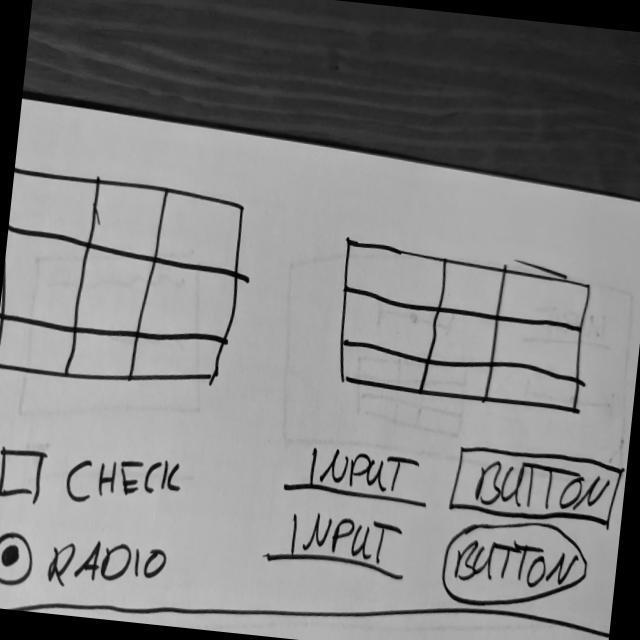 CHECK INPUT BUTTON
RADIO INPUT BUTTON